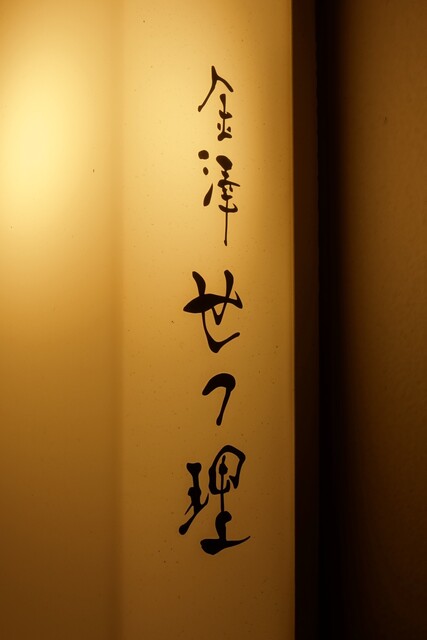 金澤せつ理